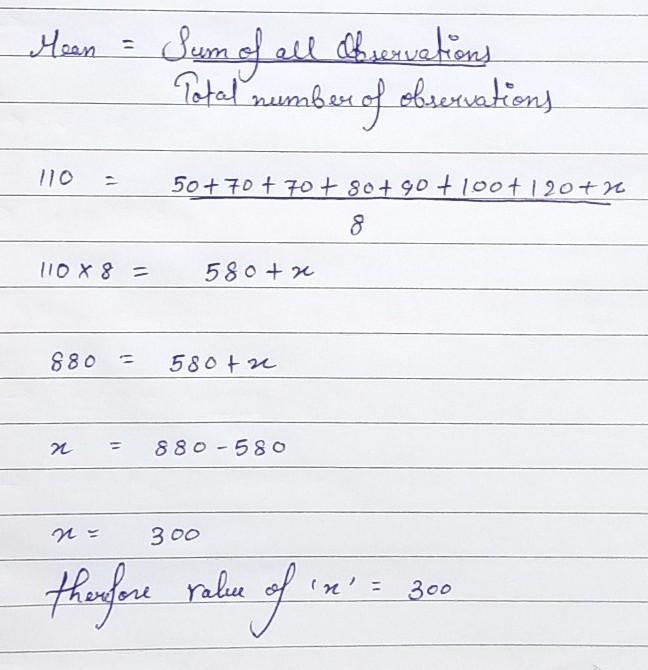 Mean = Sum of all Observations
Total number of observations
110 = 50+70+70+80+90+100+120+x
8
110 x 8 = 580+x
880 = 580+x
x = 880-580
x = 300
therefore value of 'x' = 300